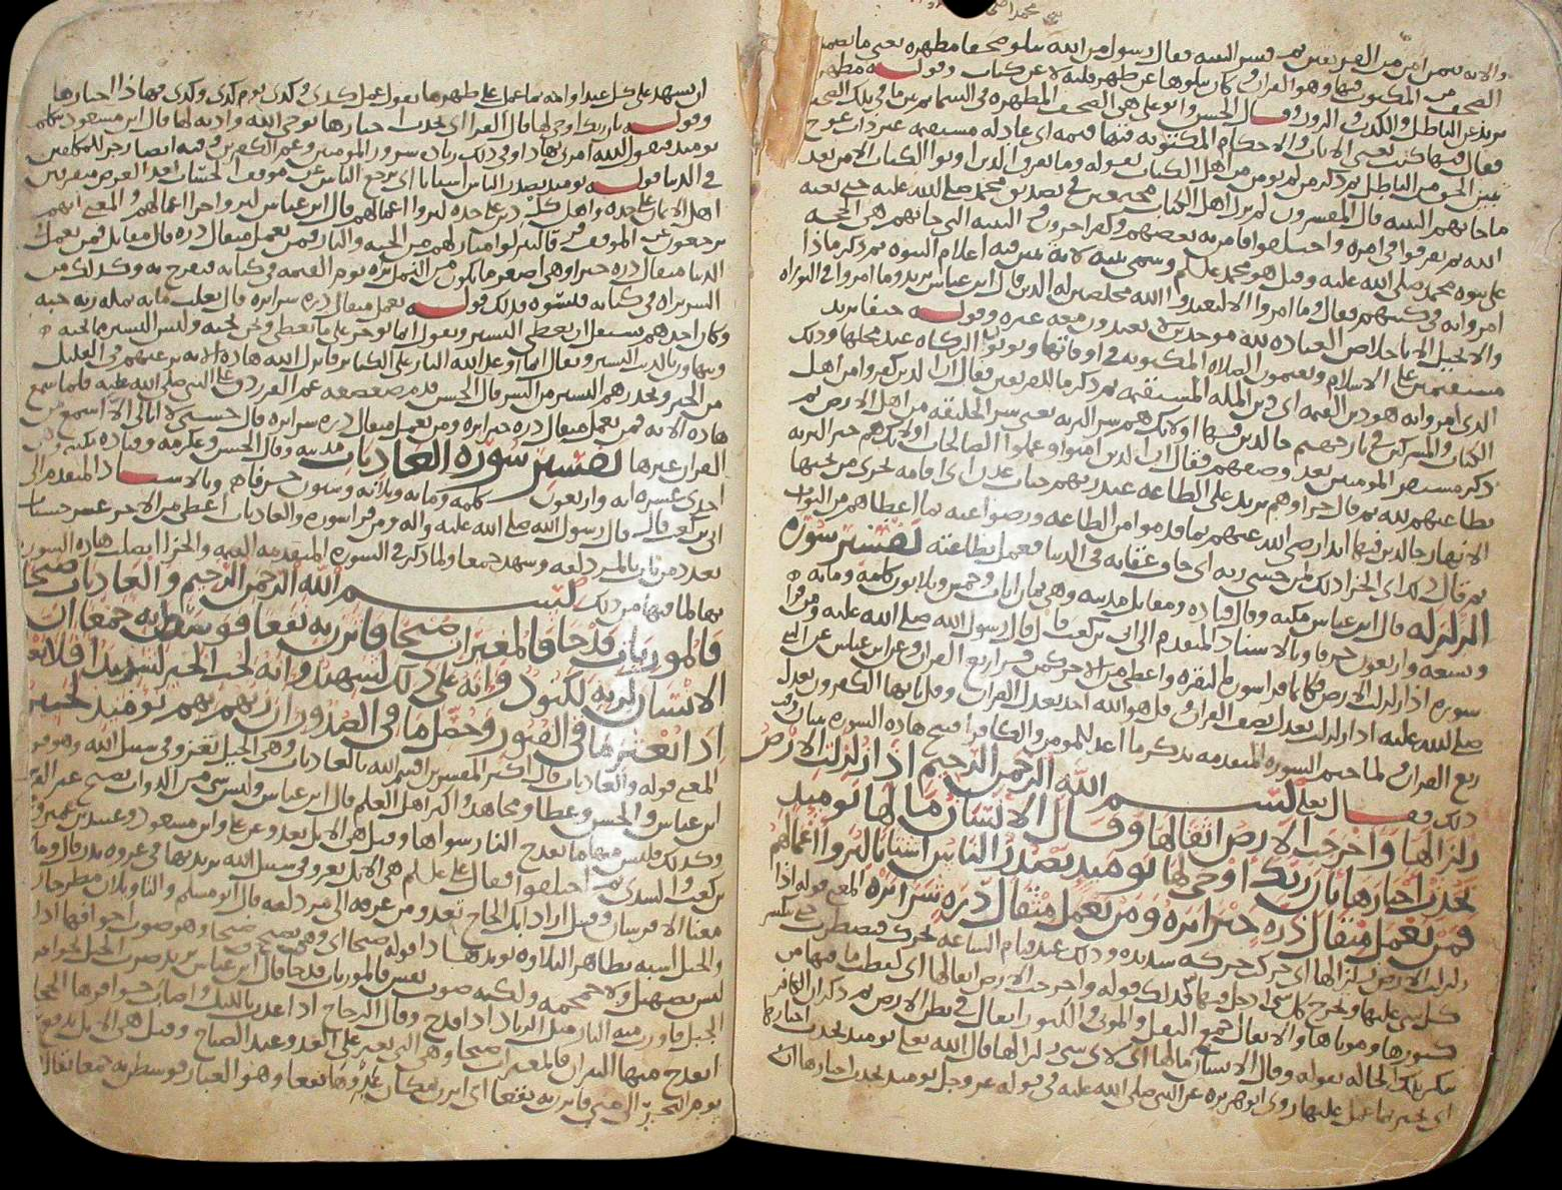 والاية فيمن امن من الفريقين ثم فسر البينة فقال رسول من الله يتلو صحفا مطهرة يعني ما تضمنه
الصحف من المكتوب فيها وهو القران كان يتلوها عن ظهر قلبه لا عن كتاب وقوله مطهرة
يريد من الباطل والكذب والزور وقال الحسن
فقال فيها كتب يعني الايات والاحكام المكتوبة فيها قيمة اي عادلة مستقيمة غير ذات عوج
تبين الحق من الباطل ثم ذكر من لم يؤمن من اهل الكتاب بقوله وما تفرق الذين اوتوا الكتاب الا من بعد
ما جاتهم البينة قال المفسرون لم يزل اهل الكتاب مجتمعين في تصديق محمد صلى الله عليه حتى بعثه
الله ثم تفرقوا في امره واختلفوا فامن به بعضهم وكفر اخرون
على نبوة محمد صلى الله عليه
امروا به في كتبهم فقال وما امروا الا ليعبدوا الله مخلصين له الدين قال ابن عباس يريد وما امروا في التوراه
والانجيل الا باخلاص العباده لله موحدين لا يعبدون معه غيره وقوله حنفا يريد
مستقيمين على الاسلام ويقيمون الصلاه المكتوبة في اوقاتها ويوتون الزكاه عند محلها وذلك
الذي امروا به هو دين القيمة اي دين الملة المستقيمة ثم ذكر ما للفريقين فقال ان الذين كفروا من اهل
الكتاب والمشركين في نار جهنم خالدين فيها اولئك هم شر البرية يعني شر الخليقة من اهل الارض ثم
ذكر مستقر المومنين بعد وصفهم فقال ان الذين امنوا وعملوا الصالحات اولئك هم خير البرية
بطاعتهم لله ثم قال جزاوهم يريد على الطاعة عند ربهم جنات عدن اي اقامة تجري من تحتها
الانهار خالدين فيها ابدا رضي الله عنهم بما قدموا من الطاعة ورضوا عنه بما اعطاهم من الثواب
ثم قال ذلك اي الجزا ذلك لمن خشي ربه اي خاف عقابه في الدنيا فعمل بطاعته تفسير سورة
الزلزلة قال ابن عباس مكية وقال قتاده ومقاتل مدنية وهي ثمان ايات وخمس وثلاثون كلمة ومائة
وتسعة واربعون حرفا وبالاسناد المتقدم الى ابي بن كعب قال قال رسول الله صلى الله عليه ومن قرا
سورة اذا زلزلت الارض فكانما قرا سورة البقرة واعطي من الاجر كمن قرا ربع القران وعن ابن عباس عن النبي
صلى الله عليه اذا زلزلت تعدل نصف القران وقل هو الله احد تعدل ثلث القران وقل يا ايها الكفرون تعدل
ربع القران ولما ختم السورة المتقدمة بذكر ما اعد للمومن والكافر افتتح هاذه السورة ببيان وقت
ذلك فقال بعد بسم الله الرحمن الرحيم اذا زلزلت الارض
زلزالها واخرجت الارض اثقالها وقال الانسان مالها يومئذ
تحدث اخبارها بان ربك اوحى لها يومئذ يصدر الناس اشتاتا ليروا اعمالهم
فمن يعمل مثقال ذرة خيرا يره ومن يعمل مثقال ذرة شرا يره المعنى قوله اذا
زلزلت الارض زلزالها اي حركت حركة شديدة وذلك عند قيام الساعة تحرك فتضطرب حتى ينكسر
كل شي عليها ويخرج كل شي ادخل فيها فذلك قوله واخرجت الارض اثقالها اي لفظت ما فيها من
كنوزها وموتاها والاثقال جمع الثقل والموتى والكنوز اثقال في بطن الارض ثم ذكر ان الكافر
ينكر تلك الحالة بقوله وقال الانسان مالها اي لاي شي زلزالها قال الله تعالى يومئذ تحدث اخبارها
اي تخبر بما عمل عليها روى ابو هريره عن النبي صلى الله عليه في قوله عز وجل يومئذ تحدث اخبارها ان
ان تشهد على كل عبد او امة بما عمل على ظهرها تقول عمل كذى وكذى يوم كذى وكذى فهاذا اخبارها
وقوله بان ربك اوحى لها قال الفرا اي تحدث اخبارها بوحي الله واذنه لها قال ابن مسعود تتكلم
يومئذ فتقول الله امرني بهاذا وفي ذلك زيادة سرور المومنين وغم الكفرين وفيه ايضا زجر للمكلفين
في الدنيا قوله يومئذ يصدر الناس اشتاتا اي يرجع الناس عن موقف الحساب بعد العرض متفرقين
اهل الايمان على حده واهل كل دين على حده ليروا اعمالهم قال ابن عباس ليروا جزا اعمالهم والمعنى انهم
يرجعون عن الموقف فرقا لينزلوا منازلهم من الجنة والنار فمن يعمل مثقال ذرة قال مقاتل فمن يعمل في
الدنيا مثقال ذرة خيرا وهي اصغر ما يكون من النمل يره يوم القيمة في كتابه فيفرح به وكذلك من
الشر يراه في كتابه فيسوه ذلك قوله يعمل مثقال ذرة شرا يره
وكان احدهم يستقل ان يعطي اليسير ويقول انما نوجر على ما نعطي ونحن نحبه وليس اليسير مما نحبه
ويتهاون بالذنب اليسير ويقول انما وعد الله النار على الكبائر فانزل الله هاذه الاية يرغبهم في القليل
من الخير ويحذرهم اليسير من الشر قال الحسن قدم صعصعة عم الفرزدق على النبي صلى الله عليه فلما سمع
هاذه الاية فمن يعمل مثقال ذرة خيرا يره ومن يعمل مثقال ذرة شرا يره قال حسبي لا ابالي الا اسمع من
القران غيرها تفسير سورة العاديات مدنية وقال الحسن وعكرمة وقتادة مكية وهي
احدى عشرة اية واربعون كلمة ومائة وثلاثة وستون حرفا وبالاسناد المتقدم الى
ابي بن كعب قال قال رسول الله صلى الله عليه واله ومن قرا سورة والعاديات اعطي من الاجر عشر حسنات
بعدد من بات بالمزدلفة وشهد جمعا ولما ذكر في السورة المتقدمة القيمة والجزا اتصلت هاذه السورة
بها لما فيها من ذلك بسم الله الرحمن الرحيم والعاديات ضبحا
فالموريات قدحا فالمغيرات صبحا فاثرن به نقعا فوسطن به جمعا ان
الانسان لربه لكنود وانه على ذلك لشهيد وانه لحب الخير لشديد افلا يعلم
اذا بعثر ما في القبور وحصل ما في الصدور ان ربهم بهم يومئذ لخبير
المعنى قوله والعاديات قال اكثر المفسرين اقسم الله بالعاديات وهي الخيل تغزو في سبيل الله وهو قول
ابن عباس والحسن وعطا ومجاهد واكثر اهل العلم قال ابن عباس وليس شي من الدواب يضبح غير الفرس
وكذلك فليس منها ما يقدح النار سواها وقيل هي الابل تعدو عن علي وابن مسعود وعبيد بن عمير و
بن كعب والسدي ثم اختلفوا فقال علي عليه السلام هي الابل تعدو في سبيل الله يريد بها في غزوة بدر قال وما
معنا الا فرسان وقيل اراد ابل الحاج تعدو من عرفة الى مزدلفة قال ابو مسلم والتاويلان مطرحان
والخيل اشبه بظاهر التلاوة يويد هاذا قوله ضبحا اي وهي تضبح ضبحا وهو صوت اجوافها اذا
ليس بصهيل ولا حمحمة ولكنه صوت نفس فالموريات قدحا قال ابن عباس يريد ضرب الخيل بحوافرها
الجبل فاورت منه النار مثل الزناد اذا قدح وقال الزجاج اذا عدت بالليل واصابت حوافرها الحجارة
انقدح منها النيران فالمغيرات صبحا وهي التي تغير على العدو عند الصباح وقيل هي الابل تدفع
يوم النحر الى منى فاثرن به نقعا اي اثرن بمكان عدوها نقعا وهو الغبار فوسطن به جمعا يقال